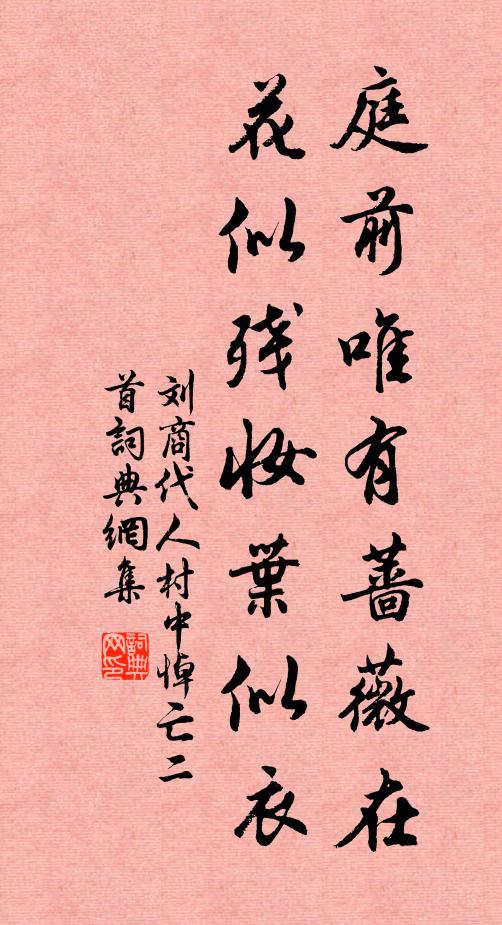 庭前唯有蔷薇在
花似残妆葉似衣
刘商代人村中悼亡二
首詞典網集
詞典网印